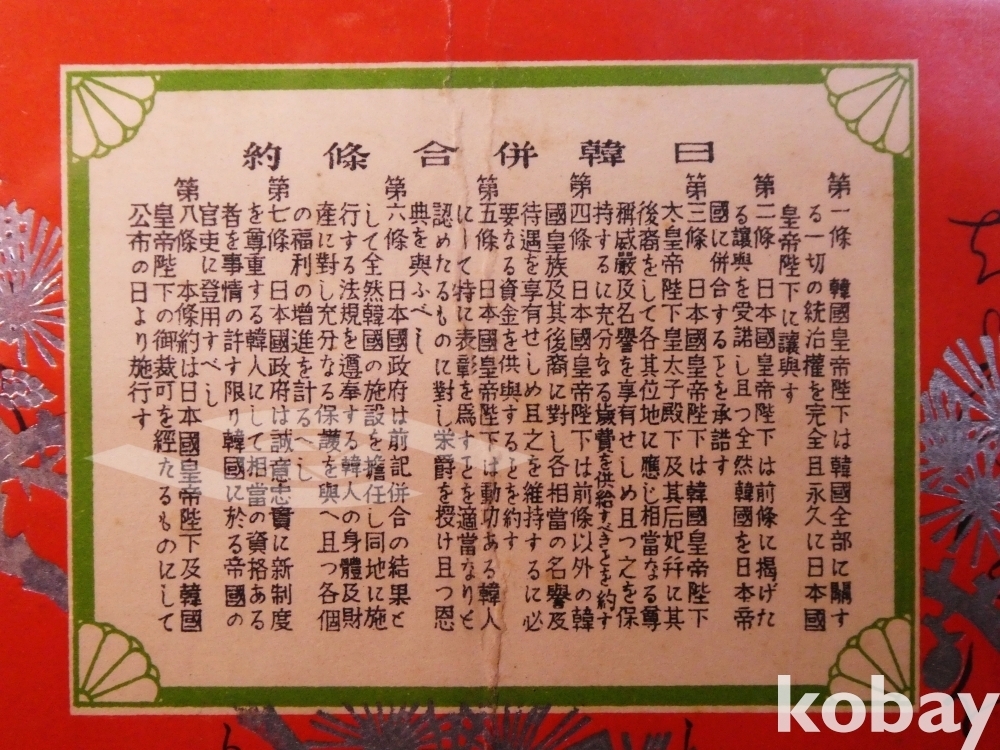 日韓併合條約
第一條　韓國皇帝陛下は韓國全部に關す
る一切の統治權を完全且永久に日本國
皇帝陛下に讓與す
第二條　日本國皇帝陛下は前條に揭げた
る讓與を受諾し且つ全然韓國を日本帝
國に併合することを承諾す
第三條　日本國皇帝陛下は韓國皇帝陛下
太皇帝陛下皇太子殿下及其后妃幷に其
後裔をして各其位地に應じ相當なる尊
稱威嚴及名譽を享有せしめ且つ之を保
持するに充分なる歲費を供給すべきことを約す
第四條　日本國皇帝陛下は前條以外の韓
國皇族及其後裔に對し各相當の名譽及
待遇を享有せしめ且之を維持するに必
要なる資金を供與することを約す
第五條　日本國皇帝陛下は勳功ある韓人
にして特に表彰を爲すことを適當なりと
認めたるものに對し栄爵を授け且つ恩
典を與ふべし
第六條　日本國政府は前記併合の結果と
して全然韓國の施設を擔任し同地に施
行する法規を遵奉する韓人の身體及財
產に對し充分なる保護を與へ且つ各個
の福利の增進を計るべし
第七條　日本國政府は誠意忠實に新制度
を尊重する韓人にして相當の資格ある
者を事情の許す限り韓國に於る帝國の
官吏に登用すべし
第八條　本條約は日本國皇帝陛下及韓國
皇帝陛下の御裁可を經たるものにして
公布の日より施行す
kobay